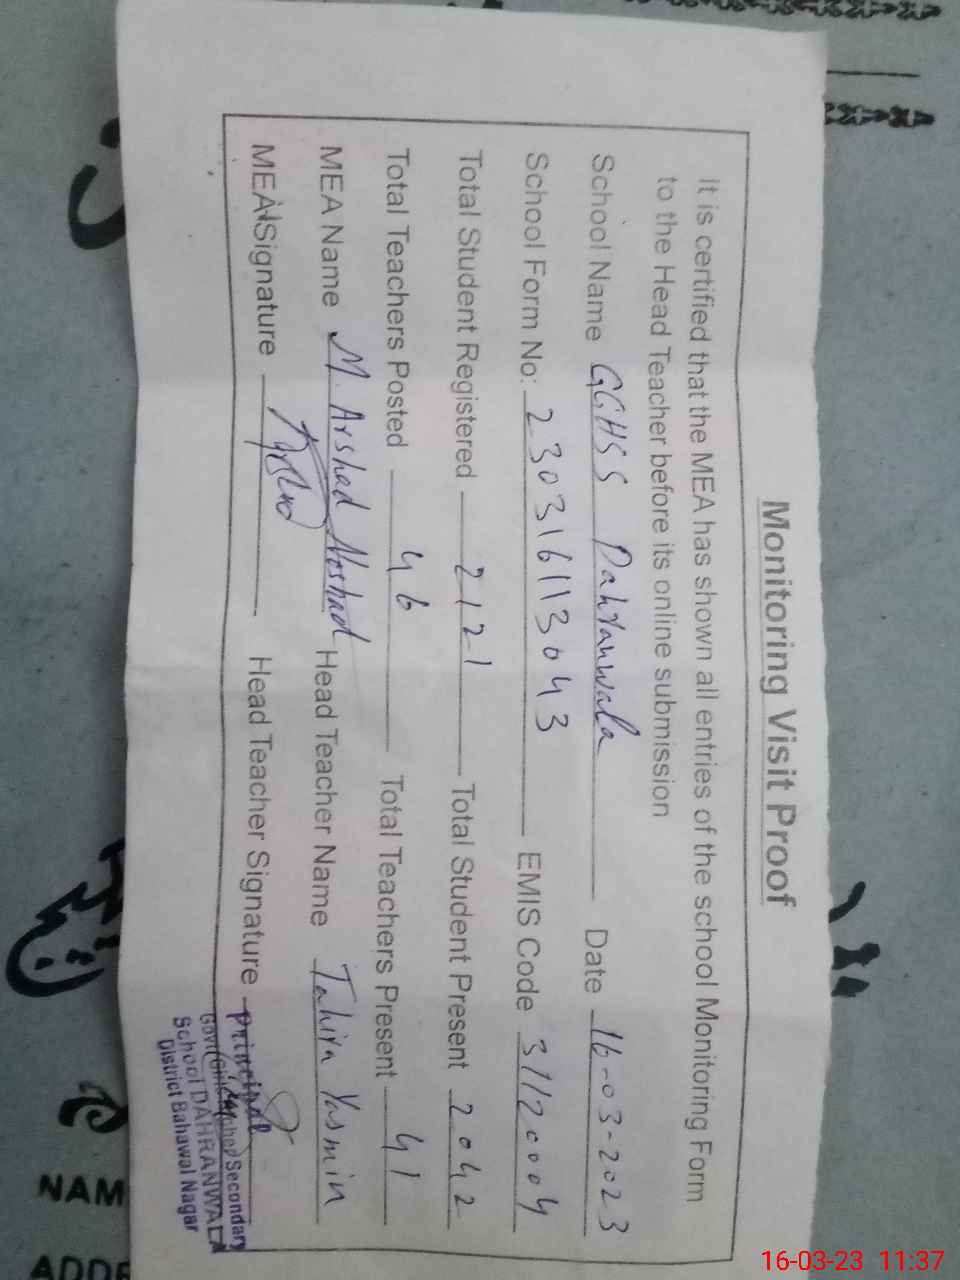 Monitoring Visit Proof
It is certified that the MEA has shown all entries of the school Monitoring Form
to the Head Teacher before its online submission
School Name GGHSS Dahranwala Date 16-03-2023
School Form No: 230316113043 EMIS Code 31120004
Total Student Registered 2121 Total Student Present 2042
Total Teachers Posted 46 Total Teachers Present 41
MEA Name M. Arshad Head Teacher Name Tahira Yasmin
MEA Signature Arshad Head Teacher Signature
Principal
Govt Secondary
School DAHRANWALA
District Bahawal Nagar
NAM
ADDR
16-03-23 11:37